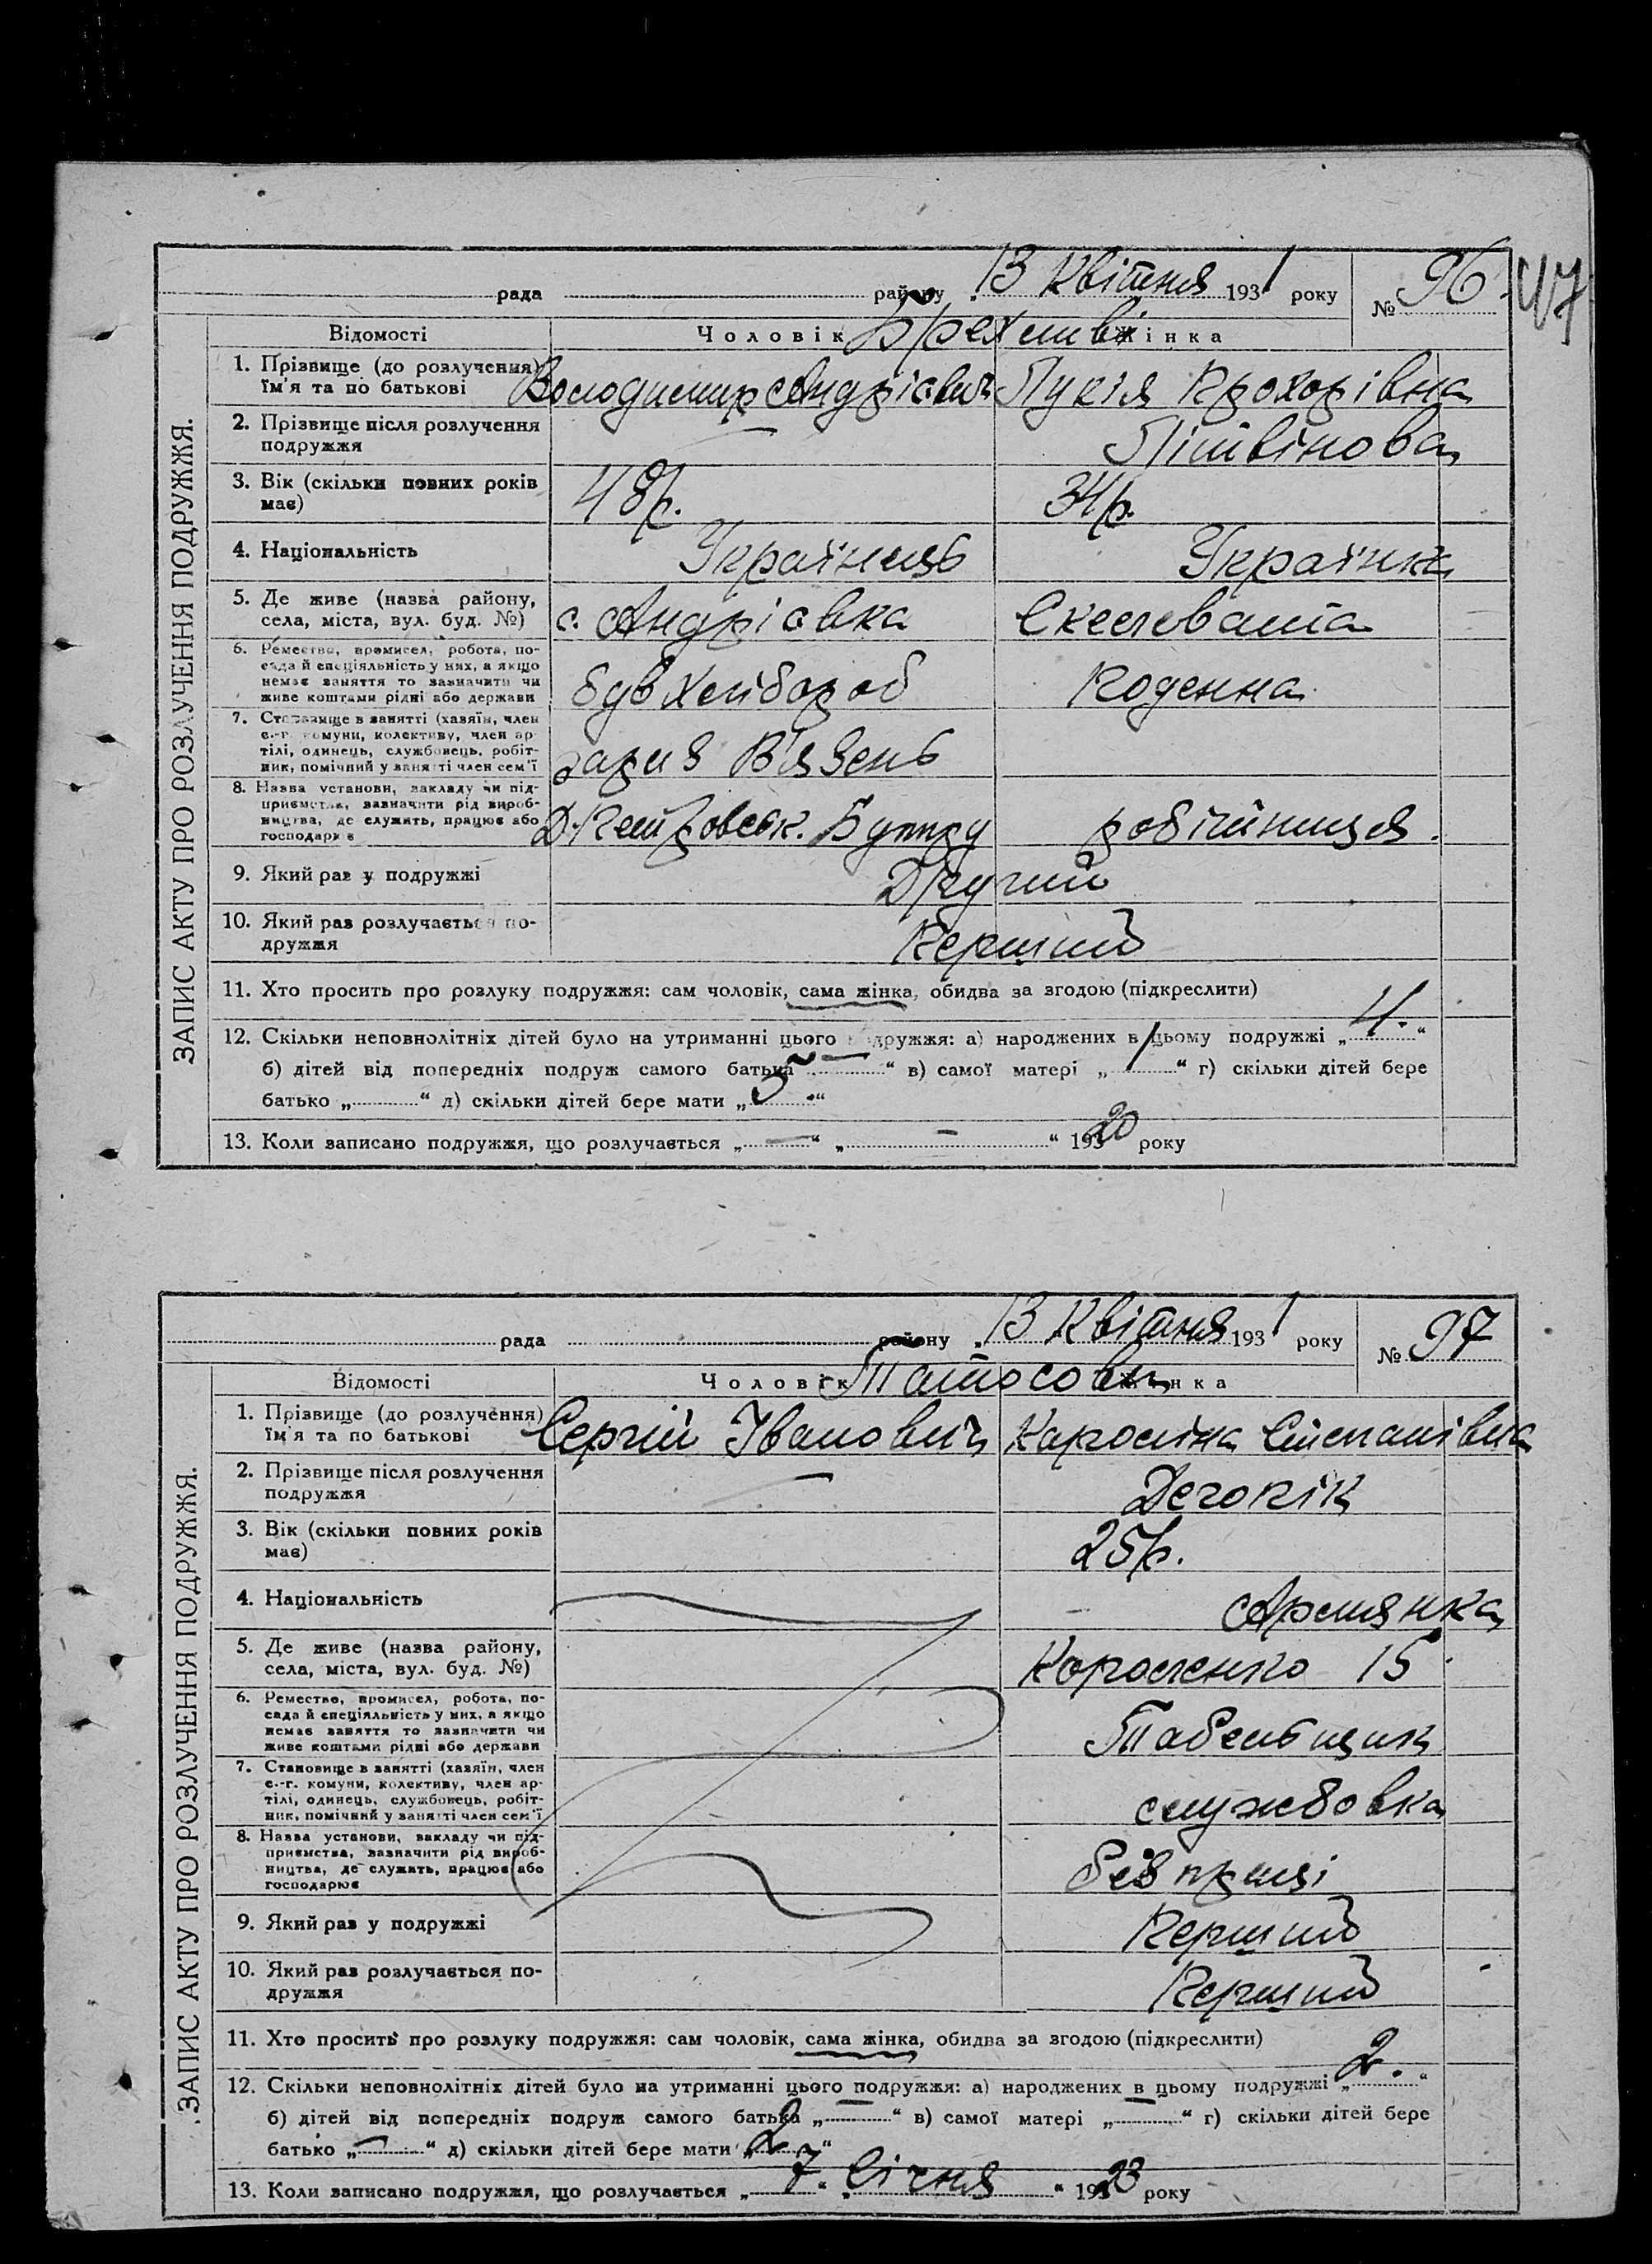 рада району 13 Квітня 1931 року № 96. 47
Відомості Чоловік Жінка
1. Прізвище (до розлучення) ім'я та по батькові Володимир Андрієвич Лукія Прохорівна
2. Прізвище після розлучення подружжя — Літвінова
3. Вік (скільки повних років має) 48р. 34р.
4. Національність Українець Українка
5. Де живе (назва району, села, міста, вул. буд. №) с. Андрієвка
6. Ремество, промисел, робота, посада й спеціяльність у них, а якщо немає заняття то зазначити чи живе коштами рідні або держави був хлібороб Поденна
7. Становище в занятті (хазяїн, член с.-г. комуни, колективу, член артілі, одинець, службовець, робітник, помічний у занятті член сем'ї зараз В'язень
8. Назва установи, закладу чи підприємства, зазначити рід виробництва, де служить, працює або господарює Дніпровськ. Бупру робітниця.
9. Який раз у подружжі Другий
10. Який раз розлучається подружжя Перший
11. Хто просить про розлуку подружжя: сам чоловік, сама жінка, обидва за згодою (підкреслити)
12. Скільки неповнолітніх дітей було на утриманні цього подружжя: а) народжених в цьому подружжі „ 4. “
б) дітей від попередніх подруж самого батька „ — “ в) самої матері „ 1 “ г) скільки дітей бере
батько „ “ д) скільки дітей бере мати „ 5. “
13. Коли записано подружжя, що розлучається „ — “ „ — “ 1920 року
ЗАПИС АКТУ ПРО РОЗЛУЧЕННЯ ПОДРУЖЖЯ.
рада району 13 Квітня 1931 року № 97
Відомості Чоловік Жінка
Татосови
1. Прізвище (до розлучення) ім'я та по батькові Сергій Іванович Кароліна Степанівна
2. Прізвище після розлучення подружжя —
3. Вік (скільки повних років має) 25р.
4. Національність Армянка
5. Де живе (назва району, села, міста, вул. буд. №) Короленко 15
6. Ремество, промисел, робота, посада й спеціяльність у них, а якщо немає заняття то зазначити чи живе коштами рідні або держави Табельщик
7. Становище в занятті (хазяїн, член с.-г. комуни, колективу, член артілі, одинець, службовець, робітник, помічний у занятті член сем'ї службовка
8. Назва установи, закладу чи підприємства, зазначити рід виробництва, де служить, працює або господарює без праці
9. Який раз у подружжі Перший
10. Який раз розлучається подружжя Перший
11. Хто просить про розлуку подружжя: сам чоловік, сама жінка, обидва за згодою (підкреслити)
12. Скільки неповнолітніх дітей було на утриманні цього подружжя: а) народжених в цьому подружжі „ 2. “
б) дітей від попередніх подруж самого батька „ — “ в) самої матері „ — “ г) скільки дітей бере
батько „ — “ д) скільки дітей бере мати „ 2 “
13. Коли записано подружжя, що розлучається „ 7 “ „ Січня “ 1923 року
ЗАПИС АКТУ ПРО РОЗЛУЧЕННЯ ПОДРУЖЖЯ.